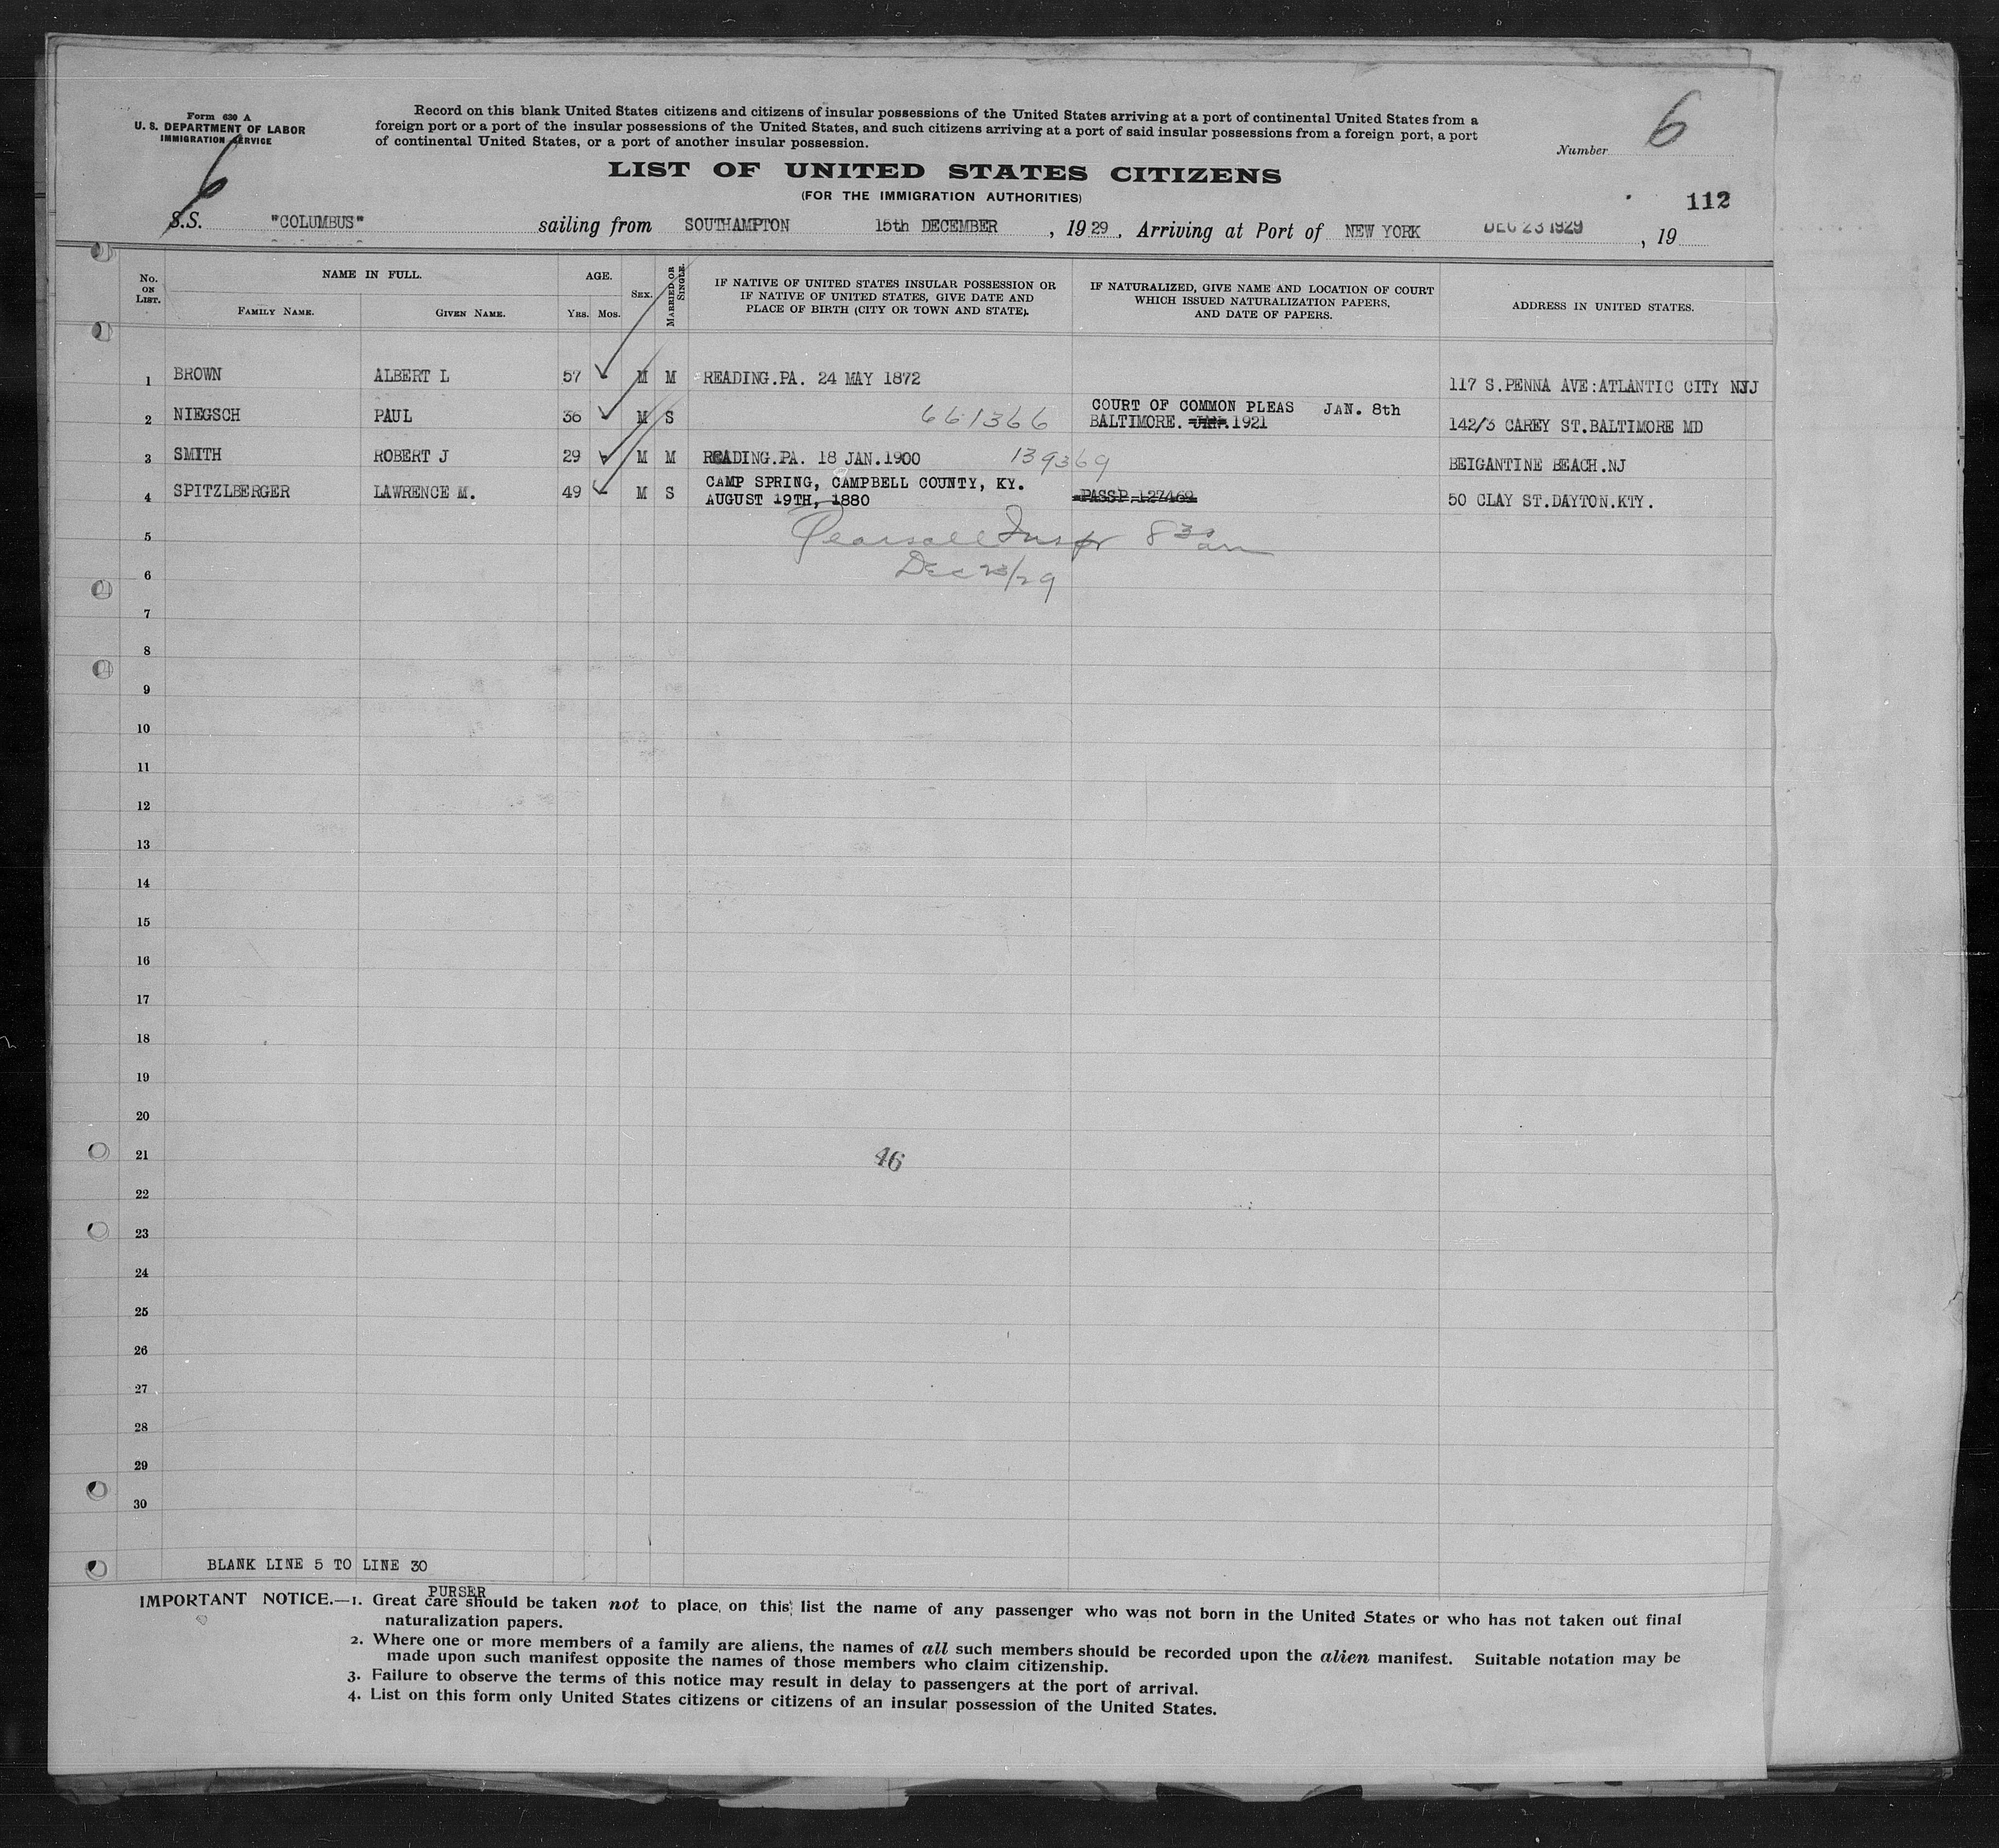 Form 630 A
U. S. DEPARTMENT OF LABOR
IMMIGRATION SERVICE
Record on this blank United States citizens and citizens of insular possessions of the United States arriving at a port of continental United States from a
foreign port or a port of the insular possessions of the United States, and such citizens arriving at a port of said insular possessions from a foreign port, a port
of continental United States, or a port of another insular possession.
Number 6
6
LIST OF UNITED STATES CITIZENS
(FOR THE IMMIGRATION AUTHORITIES)
112
S.S. "COLUMBUS" sailing from SOUTHAMPTON 15th DECEMBER , 19 29 , Arriving at Port of NEW YORK DEC 23 1929 , 19
No. ON LIST.
NAME IN FULL.
FAMILY NAME. GIVEN NAME.
AGE.
YRS. MOS.
SEX.
MARRIED OR SINGLE.
IF NATIVE OF UNITED STATES INSULAR POSSESSION OR
IF NATIVE OF UNITED STATES, GIVE DATE AND
PLACE OF BIRTH (CITY OR TOWN AND STATE).
IF NATURALIZED, GIVE NAME AND LOCATION OF COURT
WHICH ISSUED NATURALIZATION PAPERS,
AND DATE OF PAPERS.
ADDRESS IN UNITED STATES.
1 BROWN ALBERT L 57 M M READING.PA. 24 MAY 1872 117 S.PENNA AVE:ATLANTIC CITY NJJ
2 NIEGSCH PAUL 36 M S 661366 COURT OF COMMON PLEAS JAN. 8th
BALTIMORE. JAN. 1921 142/3 CAREY ST.BALTIMORE MD
3 SMITH ROBERT J 29 M M READING.PA. 18 JAN.1900 139369 BEIGANTINE BEACH.NJ
4 SPITZLBERGER LAWRENCE M. 49 M S CAMP SPRING, CAMPBELL COUNTY, KY.
AUGUST 19TH, 1880 PASSP. 127469 50 CLAY ST.DAYTON.KTY.
5 Pearsall Inspr 8 30 am
6 Dec 23/29
7
8
9
10
11
12
13
14
15
16
17
18
19
20
21 46
22
23
24
25
26
27
28
29
30
BLANK LINE 5 TO LINE 30
PURSER
IMPORTANT NOTICE.—1. Great care should be taken not to place, on this list the name of any passenger who was not born in the United States or who has not taken out final
naturalization papers.
2. Where one or more members of a family are aliens, the names of all such members should be recorded upon the alien manifest. Suitable notation may be
made upon such manifest opposite the names of those members who claim citizenship.
3. Failure to observe the terms of this notice may result in delay to passengers at the port of arrival.
4. List on this form only United States citizens or citizens of an insular possession of the United States.